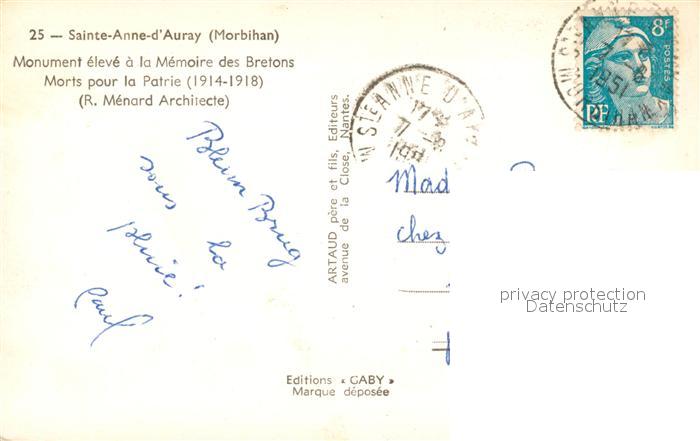 25 — Sainte-Anne-d'Auray (Morbihan)
Monument élevé à la Mémoire des Bretons
Morts pour la Patrie (1914-1918)
(R. Ménard Architecte)
Bleun Brug
sous la
pluie!
Paul
ARTAUD père et fils, Editeurs
avenue de la Close, Nantes.
Editions « GABY »
Marque déposée
STE ANNE D'
17H
7-8
1951
8F
POSTES
RF
1951
Mad
chez
privacy protection
Datenschutz